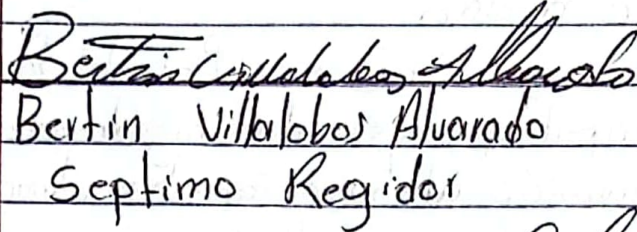 Bertin Villalobos Alvarado
Bertin Villalobos Alvarado
Septimo Regidor